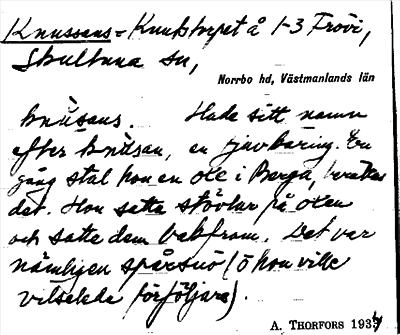 Knussens - Knutstorpet å 1-3 Frövi,
Skultuna sn,
Norrbo hd, Västmanlands län
knu̇sans. Hade sitt namn
efter knusan, en tjuvkäring. En
gång stal hon en oxe i Berga, berättas
det. Hon satte stövlar på oxen
och satte dem bakfram. Det var
nämligen spårsnö (ö hon ville
vilseleda förföljare).
A. THORFORS 1934